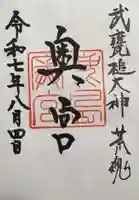 武甕槌大神 荒魂
奥宮
鹿島神宮
令和七年八月四日